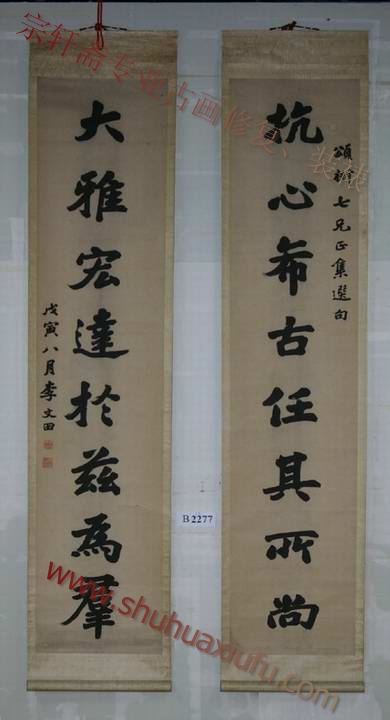 頌 七兄正集選句
抗心希古任其所尚
大雅宏達於茲為羣
戊寅八月李文田
B2277
宗轩斋专业古画修复、装裱
www.shuhuaxiufu.com